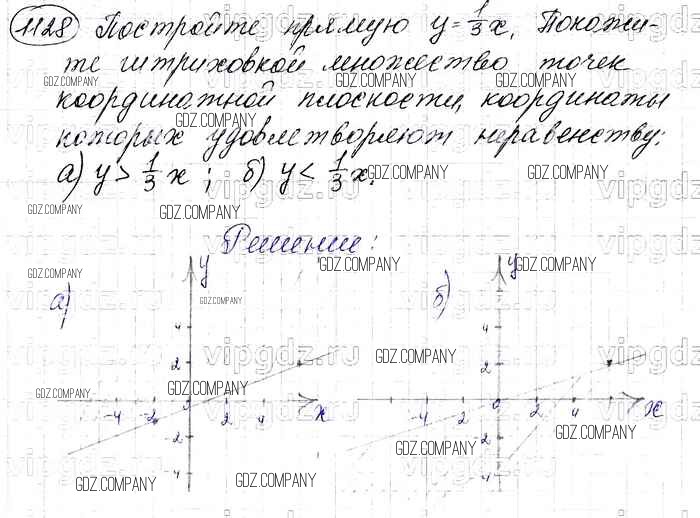 1128 Постройте прямую y = 1/3 x. Покажи-
те штриховкой множество точек
GDZ.COMPANY GDZ.COMPANY GDZ.COMPANY
координатной плоскости, координаты
GDZ.COMPANY
которых удовлетворяют неравенству:
а) y > 1/3 x ; б) y < 1/3 x.
GDZ.COMPANY GDZ.COMPANY
vipgdz.ru
GDZ.COMPANY GDZ.COMPANY GDZ.COMPANY
Решение:
GDZ.COMPANY GDZ.COMPANY GDZ.COMPANY
а) y б) y
GDZ.COMPANY
4 4
2 2
vipgdz.ru
GDZ.COMPANY
GDZ.COMPANY GDZ.COMPANY
-4 -2 0 2 4 x -4 -2 0 2 4 x
-2 -2
GDZ.COMPANY
GDZ.COMPANY
-4 -4
GDZ.COMPANY GDZ.COMPANY GDZ.COMPANY